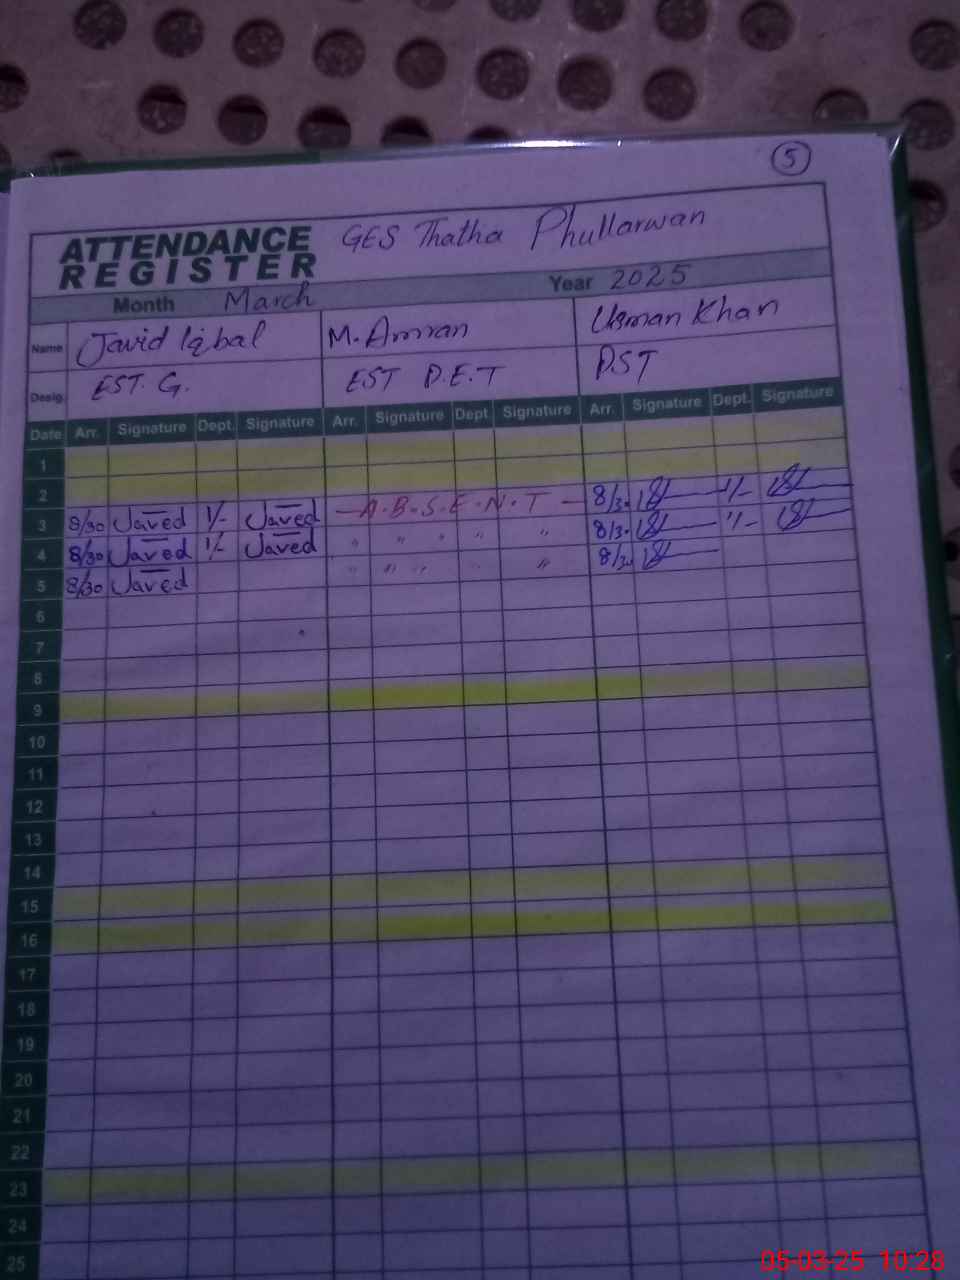 5
ATTENDANCE REGISTER GES Thatha Phullarwan
Month March Year 2025
Name Javid Iqbal M. Amran Usman Khan
Desig. EST. G. EST P.E.T PST
Date Arr. Signature Dept. Signature Arr. Signature Dept Signature Arr. Signature Dept. Signature
1
2
3 8/30 Javed 1/- Javed - A.B.S.E.N.T - 8/30 1/-
4 8/30 Javed 1/- Javed " " " " " 8/30 1/-
5 8/30 Javed " " " " " 8/30
6
7
8
9
10
11
12
13
14
15
16
17
18
19
20
21
22
23
24
25
05-03-25 10:28